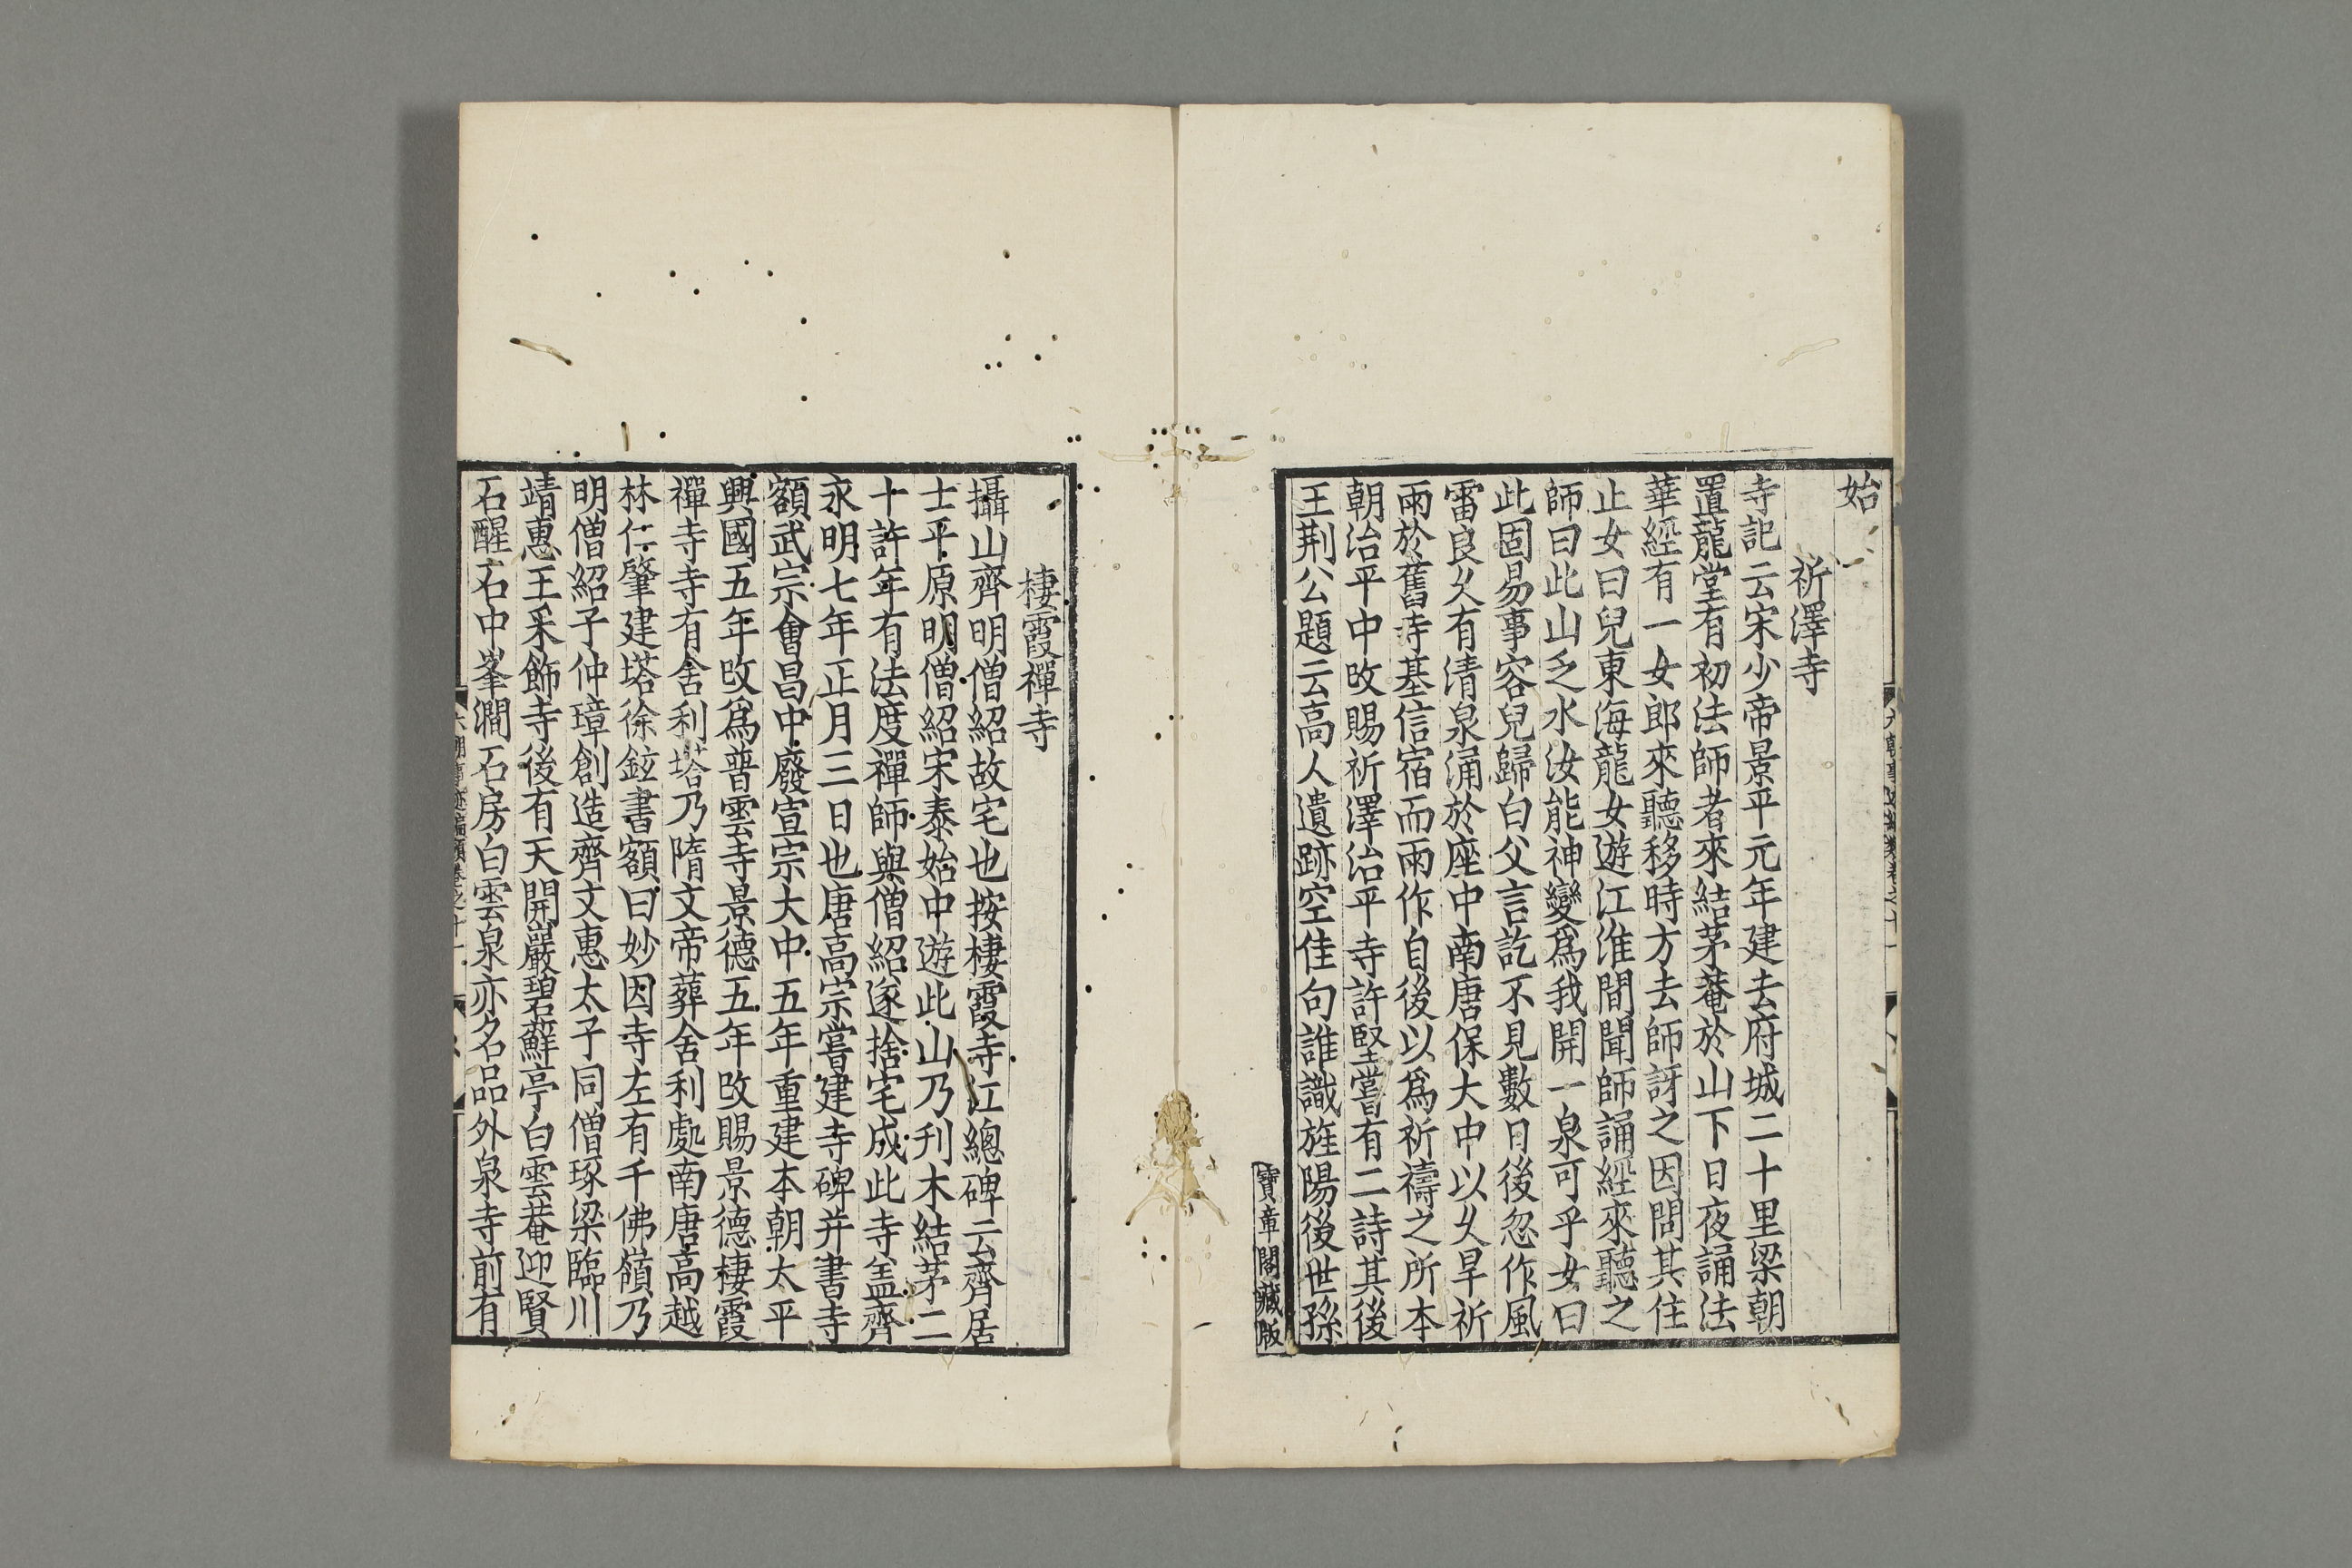 始
祈澤寺
寺記云宋少帝景平元年建去府城二十里梁朝
置龍堂有初法師者來結茅菴於山下日夜誦法
華經有一女郎來聽移時方去師訝之因問其住
止女曰兒東海龍女遊江淮間聞師誦經來聽之
師曰此山乏水汝能神變爲我開一泉可乎女曰
此固易事容兒歸白父言訖不見數日後忽作風
雷良乆有清泉涌於座中南唐保大中以乆旱祈
雨於舊寺基信宿而雨作自後以爲祈禱之所本
朝治平中改賜祈澤治平寺許堅嘗有二詩其後
王荆公題云高人遺跡空佳句誰識旌陽後世孫
寶章閣藏版
棲霞禪寺
攝山齊明僧紹故宅也按棲霞寺江總碑云齊居
士平原明僧紹宋泰始中遊此山乃刊木結茅二
十許年有法度禪師與僧紹逐捨宅成此寺盖齊
永明七年正月三日也唐高宗嘗建寺碑并書寺
額武宗會昌中廢宣宗大中五年重建本朝太平
興國五年改爲普雲寺景德五年改賜景德棲霞
禪寺寺有舍利塔乃隋文帝葬舍利處南唐高越
林仁肇建塔徐鉉書額曰妙因寺左有千佛嶺乃
明僧紹子仲璋創造齊文惠太子同僧琢梁臨川
靖惠王采飾寺後有天開巖碧蘚亭白雲菴迎賢
石醒石中峯澗石房白雲泉亦名品外泉寺前有